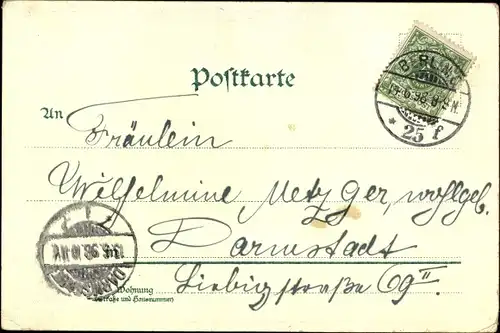 Postkarte
An
Fräulein
Wilhelmine Metzger, wohlgeb.
Darmstadt
Liebigstraße 69 II
Wohnung
(Straße und Hausnummer)
BERLIN
* 25 f